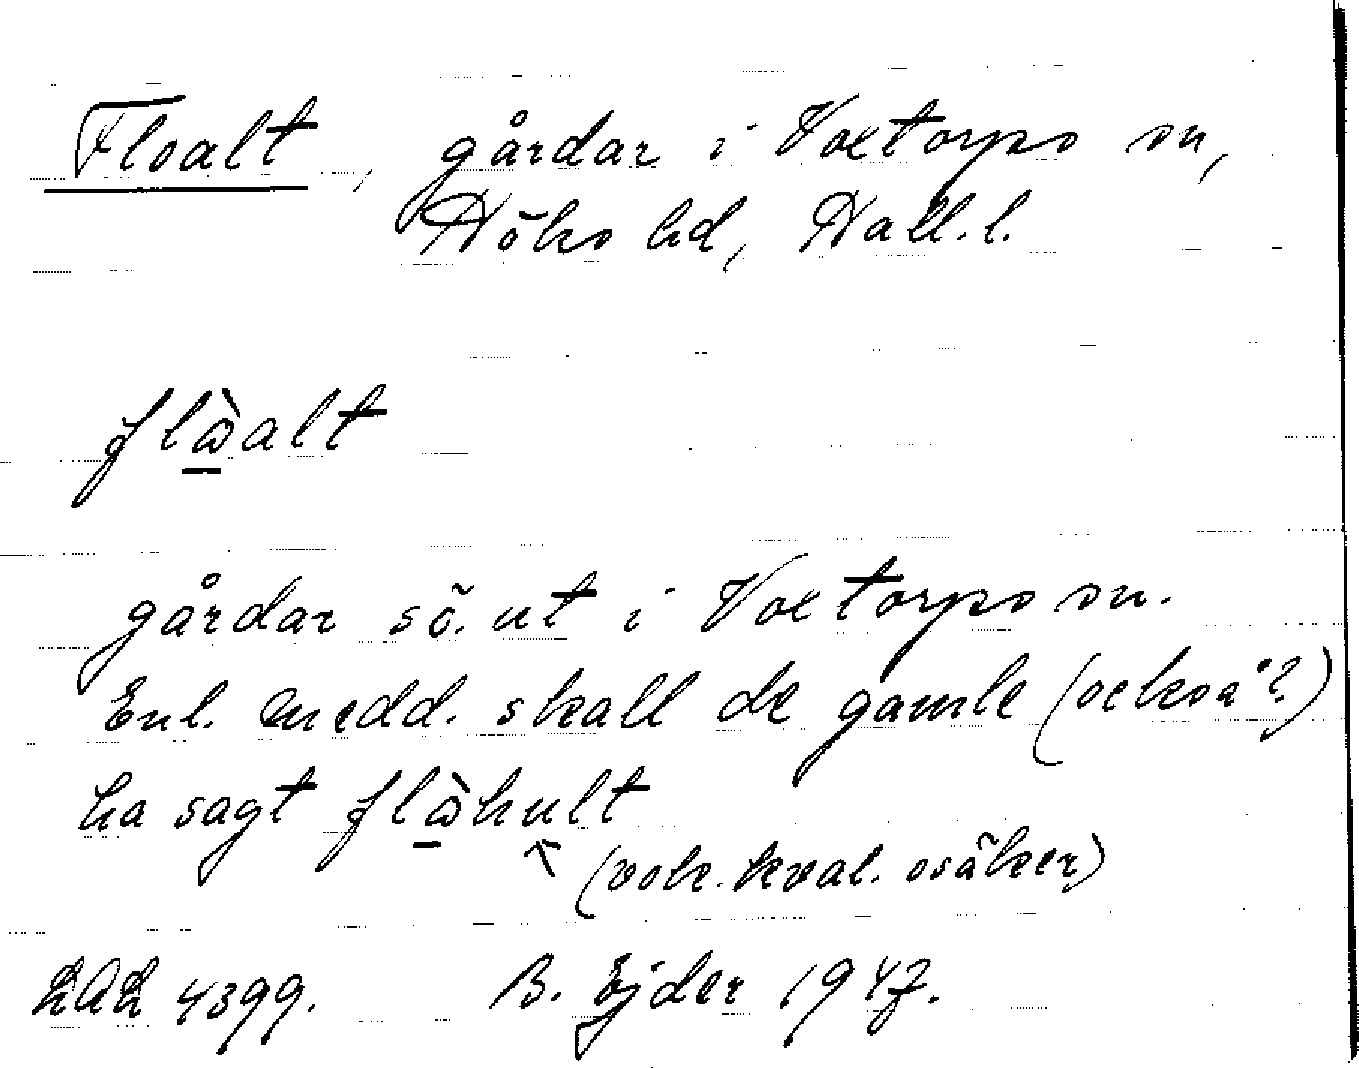 Floalt, gårdar i Voxtorps sn,
Höks hd, Hall. l.
flὼalt
gårdar sö. ut i Voxtorps sn.
Enl. medd. skall de gamle (också?)
ha sagt flὼhult
(vok. kval. osäker)
LAL 4399. B. Ejder 1947.